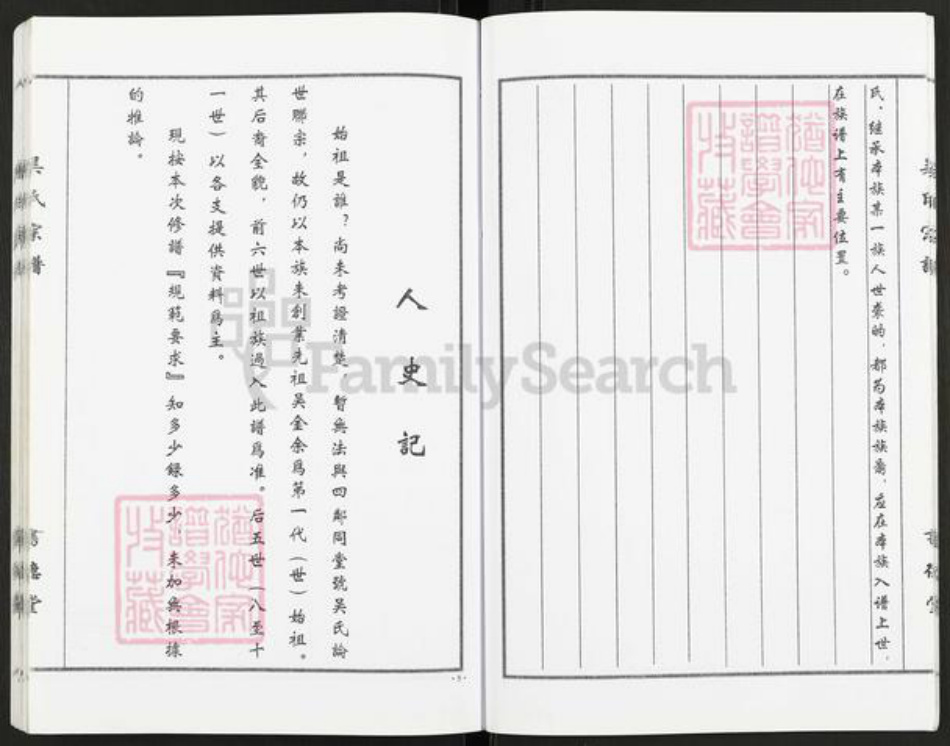 氏,继承本族某一族人世袭的,都为本族族裔,应在本族入谱上世,
在族谱上有主要位置。
人史記
始祖是誰?尚未考證清楚,暫無法與四鄰同堂號吳氏論
世聯宗,故仍以本族来創業先祖吴金余爲第一代(世)始祖。
其后裔全貌,前六世以祖族過入此譜爲准。后五世(八至十
一世)以各支提供資料爲主。
現按本次修譜『規範要求』知多少錄多少,未加無根據
的推論。
吴氏宗譜
FamilySearch
譜學會
收藏
譜學會
收藏